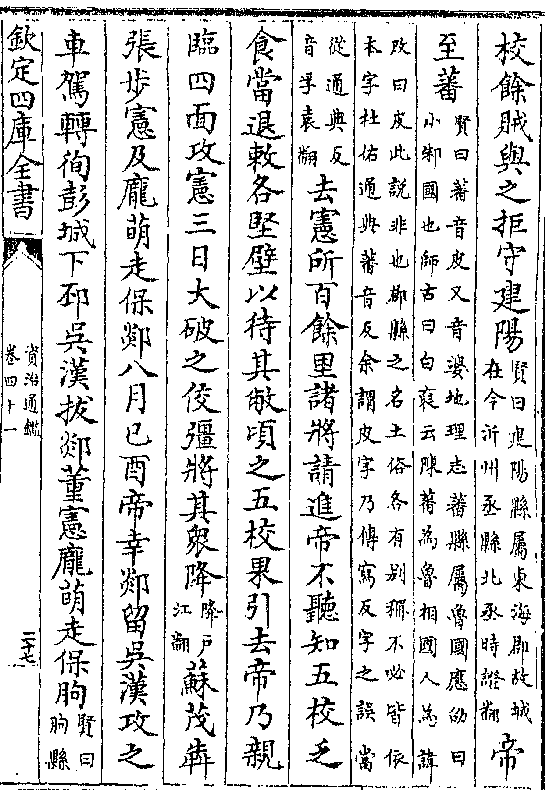 校餘賊與之拒守建陽賢曰建陽縣屬東海郡故城在今沂州丞縣北丞時證翻帝
至蕃賢曰蕃音皮又音婆地理志蕃縣屬魯國應劭曰小邾國也師古曰白裒云陳蕃為魯相國人為諱
改曰皮此説非也郡縣之名土俗各有别稱不必皆依本字杜佑通典蕃音反余謂皮字乃傳寫反字之誤當
從通典反音孚袁翻去憲所百餘里諸將請進帝不聽知五校乏
食當退敕各堅壁以待其敝頃之五校果引去帝乃親
臨四面攻憲三日大破之佼彊將其衆降降户江翻蘇茂犇
張步憲及龐萌走保郯八月己酉帝幸郯留吳漢攻之
車駕轉徇彭城下邳吳漢拔郯董憲龐萌走保朐賢曰朐縣
欽定四庫全書
資治通鑑
卷四十一
二十七